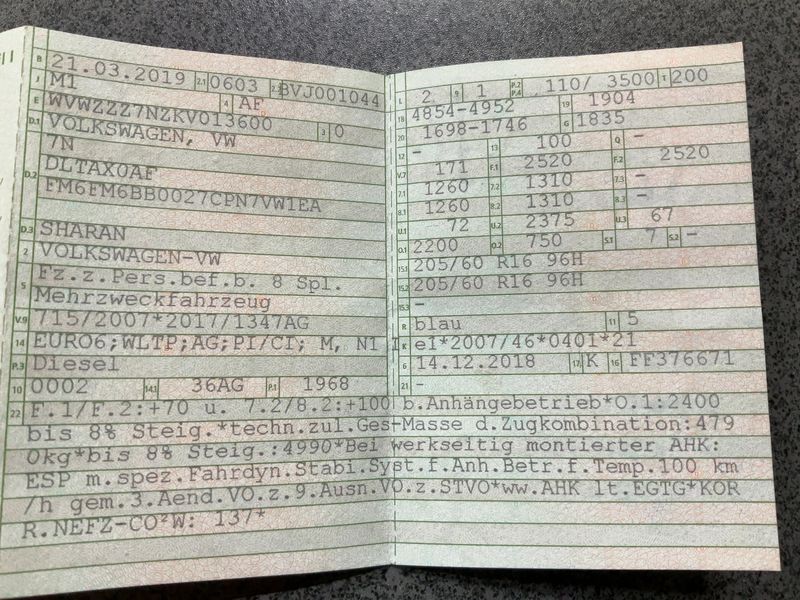 B 21.03.2019 2.1 0603 2.2 BVJ001044
J M1 4 AF
E WVWZZZ7NZKV013600 3 0
D.1 VOLKSWAGEN, VW
D.2 7N
DLTAX0AF
FM6FM6BB0027CPN7VW1EA
D.3 SHARAN
2 VOLKSWAGEN-VW
5 Fz.z.Pers.bef.b. 8 Spl.
Mehrzweckfahrzeug
V.9 715/2007*2017/1347AG
14 EURO6;WLTP;AG;PI/CI; M, N1 I
P.3 Diesel
10 0002 14.1 36AG P.1 1968
L 2 9 1 P.2 P.4 110/ 3500 T 200
18 4854-4952 19 1904
20 1698-1746 G 1835
12 - 13 100 Q -
V.7 171 F.1 2520 F.2 2520
7.1 1260 7.2 1310 7.3 -
8.1 1260 8.2 1310 8.3 -
U.1 72 U.2 2375 U.3 67
O.1 2200 O.2 750 S.1 7 S.2 -
15.1 205/60 R16 96H
15.2 205/60 R16 96H
15.3 -
R blau 11 5
K e1*2007/46*0401*21
6 14.12.2018 17 K 16 FF376671
21 -
22 F.1/F.2:+70 u. 7.2/8.2:+100 b.Anhängebetrieb*O.1:2400
bis 8% Steig.*techn.zul.Ges-Masse d.Zugkombination:479
0kg*bis 8% Steig.:4990*Bei werkseitig montierter AHK:
ESP m.spez.Fahrdyn.Stabi.Syst.f.Anh.Betr.f.Temp.100 km
/h gem.3.Aend.VO.z.9.Ausn.VO.z.STVO*ww.AHK lt.EGTG*KOR
R.NEFZ-CO²W: 137*